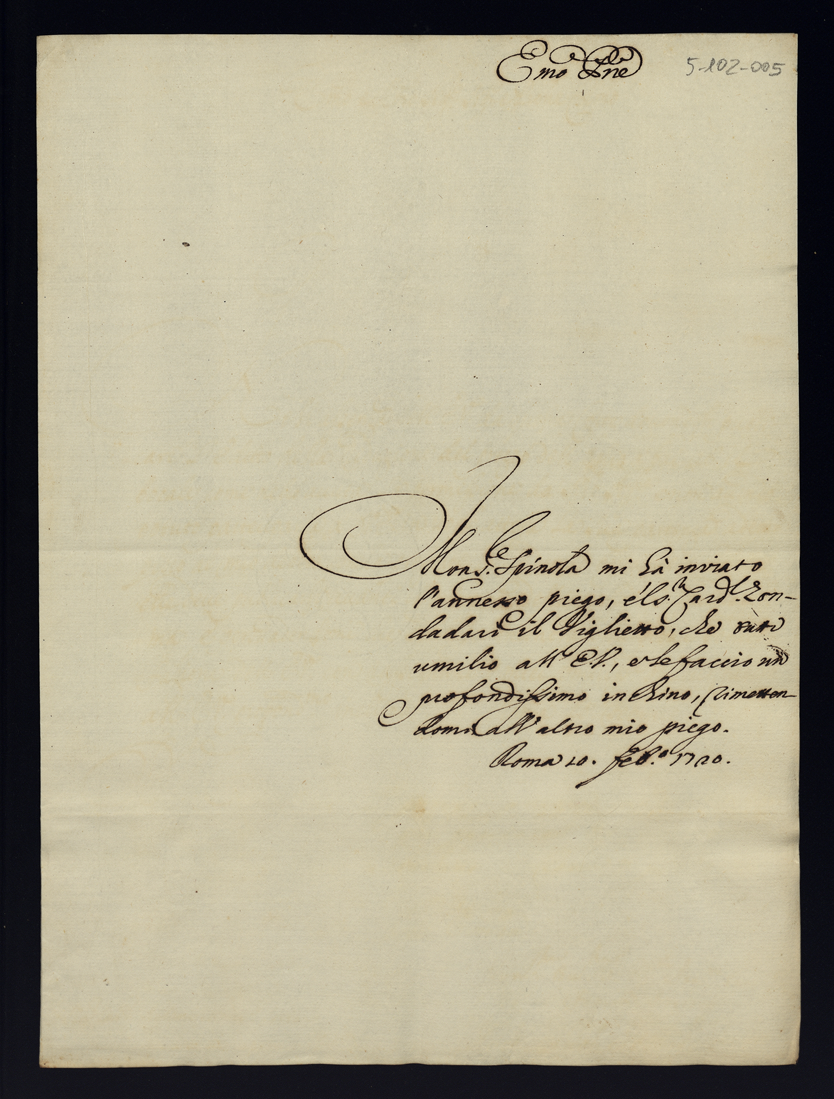 Emo Pne
5-102-005
Mons.re Spinola mi hà inviato
l'annesso piego, e'l S. Card.l Zon-
dadari il Viglietto, che tutto
umilio all' E.V., e le faccio un
profondissimo inchino, rimetten-
domi all' altro mio piego.
Roma 10. feb.o 1720.